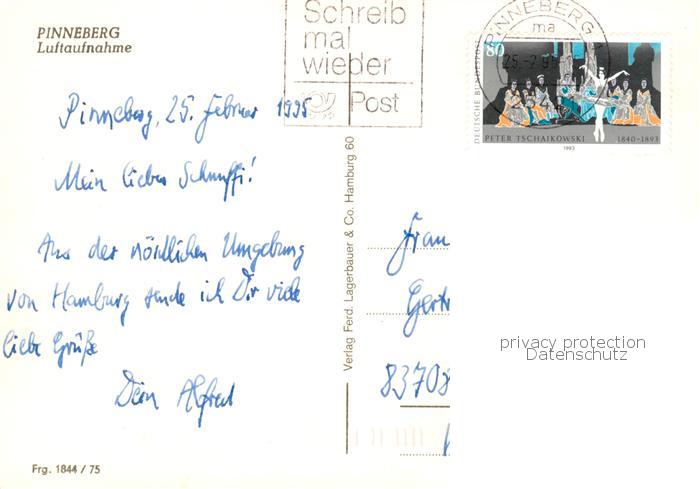 PINNEBERG
Luftaufnahme
Schreib
mal
wieder
Post
PINNEBERG
ma
25.-2.95
80
DEUTSCHE BUNDESPOST
PETER TSCHAIKOWSKI 1840-1893
1993
Pinneberg, 25. Februar 1995
Mein liebes Schnuffi!
Aus der nördlichen Umgebung
von Hamburg sende ich Dir viele
liebe Grüße
Dein Alfred
Verlag Ferd. Lagerbauer & Co. Hamburg 60
Frau
Gertr
83708
privacy protection
Datenschutz
Frg. 1844 / 75